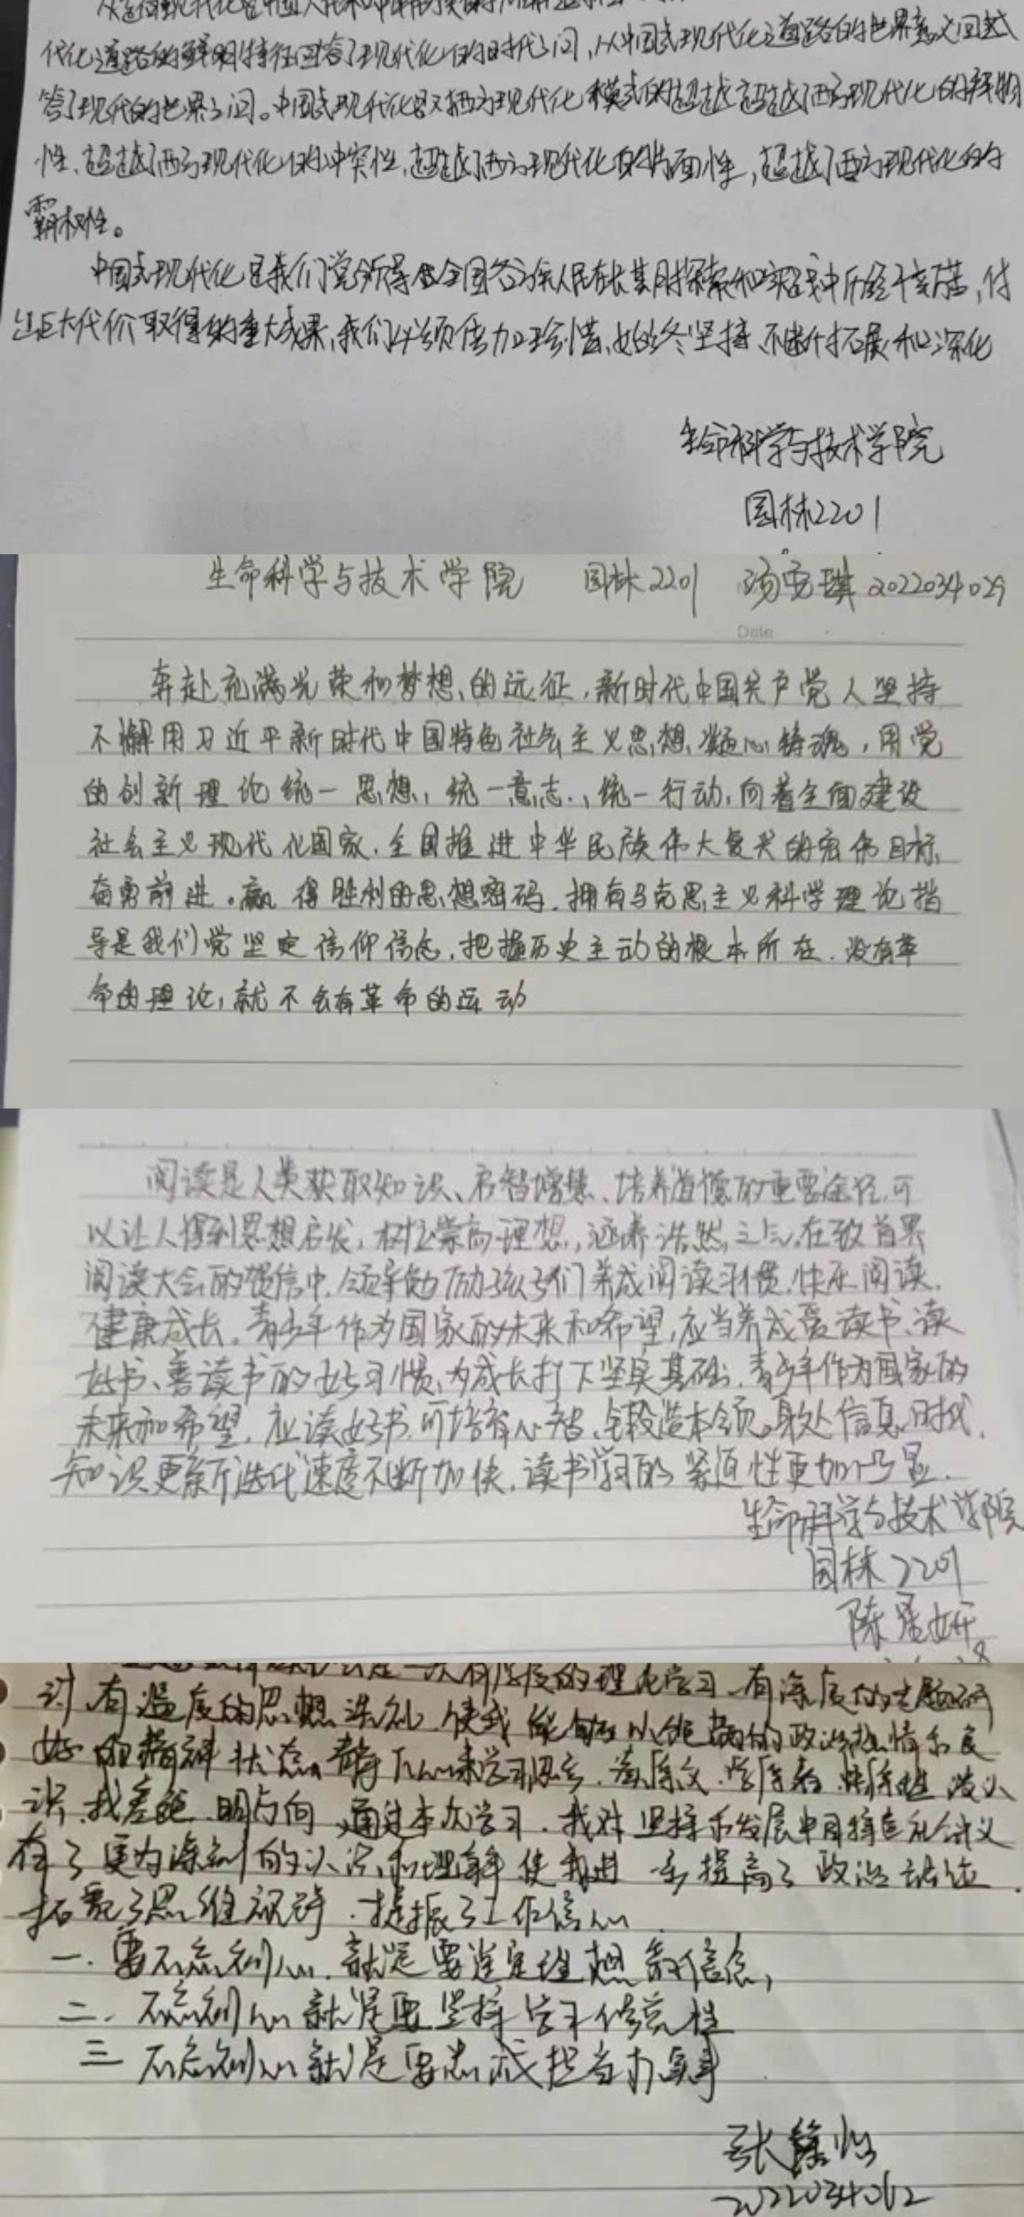 代化道路的鲜明特征回答了现代化的时代之问,从中国式现代化道路的世界意义回式
答了现代的世界之问。中国式现代化是对西方现代化模式的超越,超越了西方现代化的
性、超越了西方现代化的冲突性,超越了西方现代化的片面性,超越了西方现代化的
霸权性。
中国式现代化是我们党领导全国各族人民在长期探索和实践中历经千辛万苦,付
出巨大代价取得的重大成果,我们必须倍加珍惜、始终坚持、不断拓展和深化
生命科学与技术学院
园林2201
生命科学与技术学院 园林2201 2022034029
Date
奔赴充满光荣和梦想的远征,新时代中国共产党人坚持
不懈用习近平新时代中国特色社会主义思想凝心铸魂,用党
的创新理论统一思想,统一意志,统一行动,向着全面建设
社会主义现代化国家,全国推进中华民族伟大复兴的宏伟目标
奋勇前进。赢得胜利的思想密码,拥有马克思主义科学理论指
导是我们党坚定信仰信念,把握历史主动的根本所在.没有革
命的理论,就不会有革命的运动
阅读是人类获取知识、启智增慧、培养道德的重要途径,可
以让人得到思想启发,树立崇高理想,涵养浩然之气,在致首界
阅读大会的贺信中,领导勉励孩子们养成阅读习惯,快乐阅读,
健康成长,青少年作为国家的未来和希望,应当养成爱读书、读
好书、善读书的好习惯,为成长打下坚实基础,青少年作为国家的
未来和希望,应读好书,可培育心智,锻造本领,身处信息时代,
知识更新迭代速度不断加快,读书学习的紧迫性更加凸显.
生命科学与技术学院
园林2201
陈
讨,有温度的思想洗礼,使我能够以饱满的政治热情和良
好的精神状态,静下心来学习,读原文,学原著,悟原理
识,找差距,明方向,通过本次学习,我对坚持和发展中国特色社会主义
有了更为深刻的认识和理解,使我进一步提高了政治站位,
拓宽了思维视野,提振了工作信心
一.要不忘初心,就是要坚定理想和信念,
二.不忘初心就是要坚持学习修党性
三 不忘初心就是要忠诚担当办实事
张
2022034062